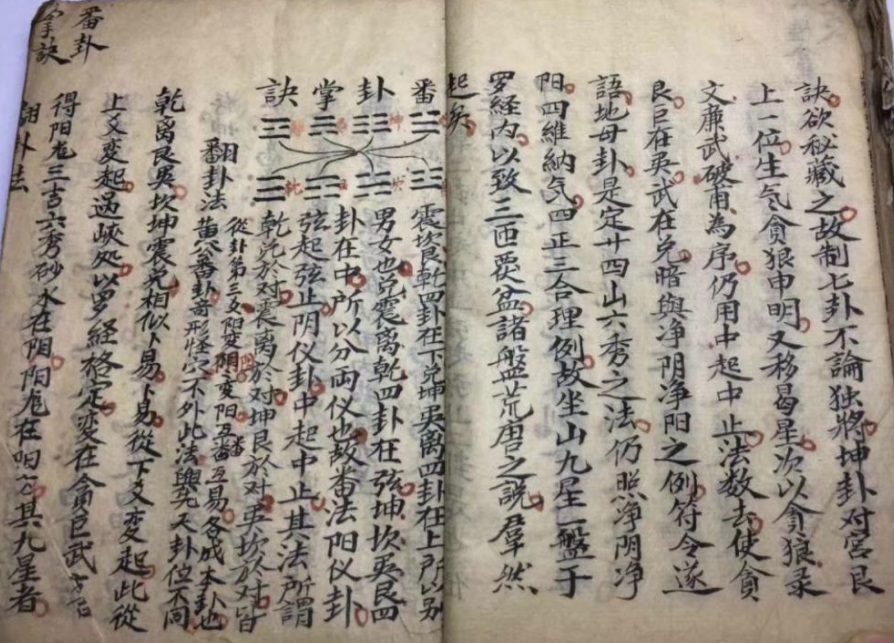 訣欲秘藏之故制七卦不論独將坤卦对宮艮
上一位生气貪狼申明又移曷星次以貪狼柔
文廉武破甫為序仍用中起中止法数去使貪
艮巨在巽武在兌暗與净阴净阳之例符令遂
語地母卦是定廿四山六秀之法仍照净阴净
阳四維納气四正三合理例故坐山九星一盤于
罗经内以致三匝覆盆諸盤荒唐之說羣然
起矣
番卦掌訣
震坎艮乾四卦在下兌坤巽离四卦在上所以别
男女也兌震离乾四卦在弦坤坎巽艮四
卦在中所以分両仪也故番法阳仪卦
弦起弦止阴仪卦中起中止其法所謂
乾兌於对震离於对坤艮於对巽坎於对皆
翻卦法
從卦第三爻阳变阴阴变阳互番互易各成本卦也
黄公番卦奇形怪穴不外此法與先天卦位不同
乾离艮巽坎坤震兌相似卜易卜易從下爻变起此從
上爻变起過峽処以罗経格定变在貪巨武
得阳龙三吉六秀砂水在阴阳龙在 其九星者
番卦
掌訣
翻卦法